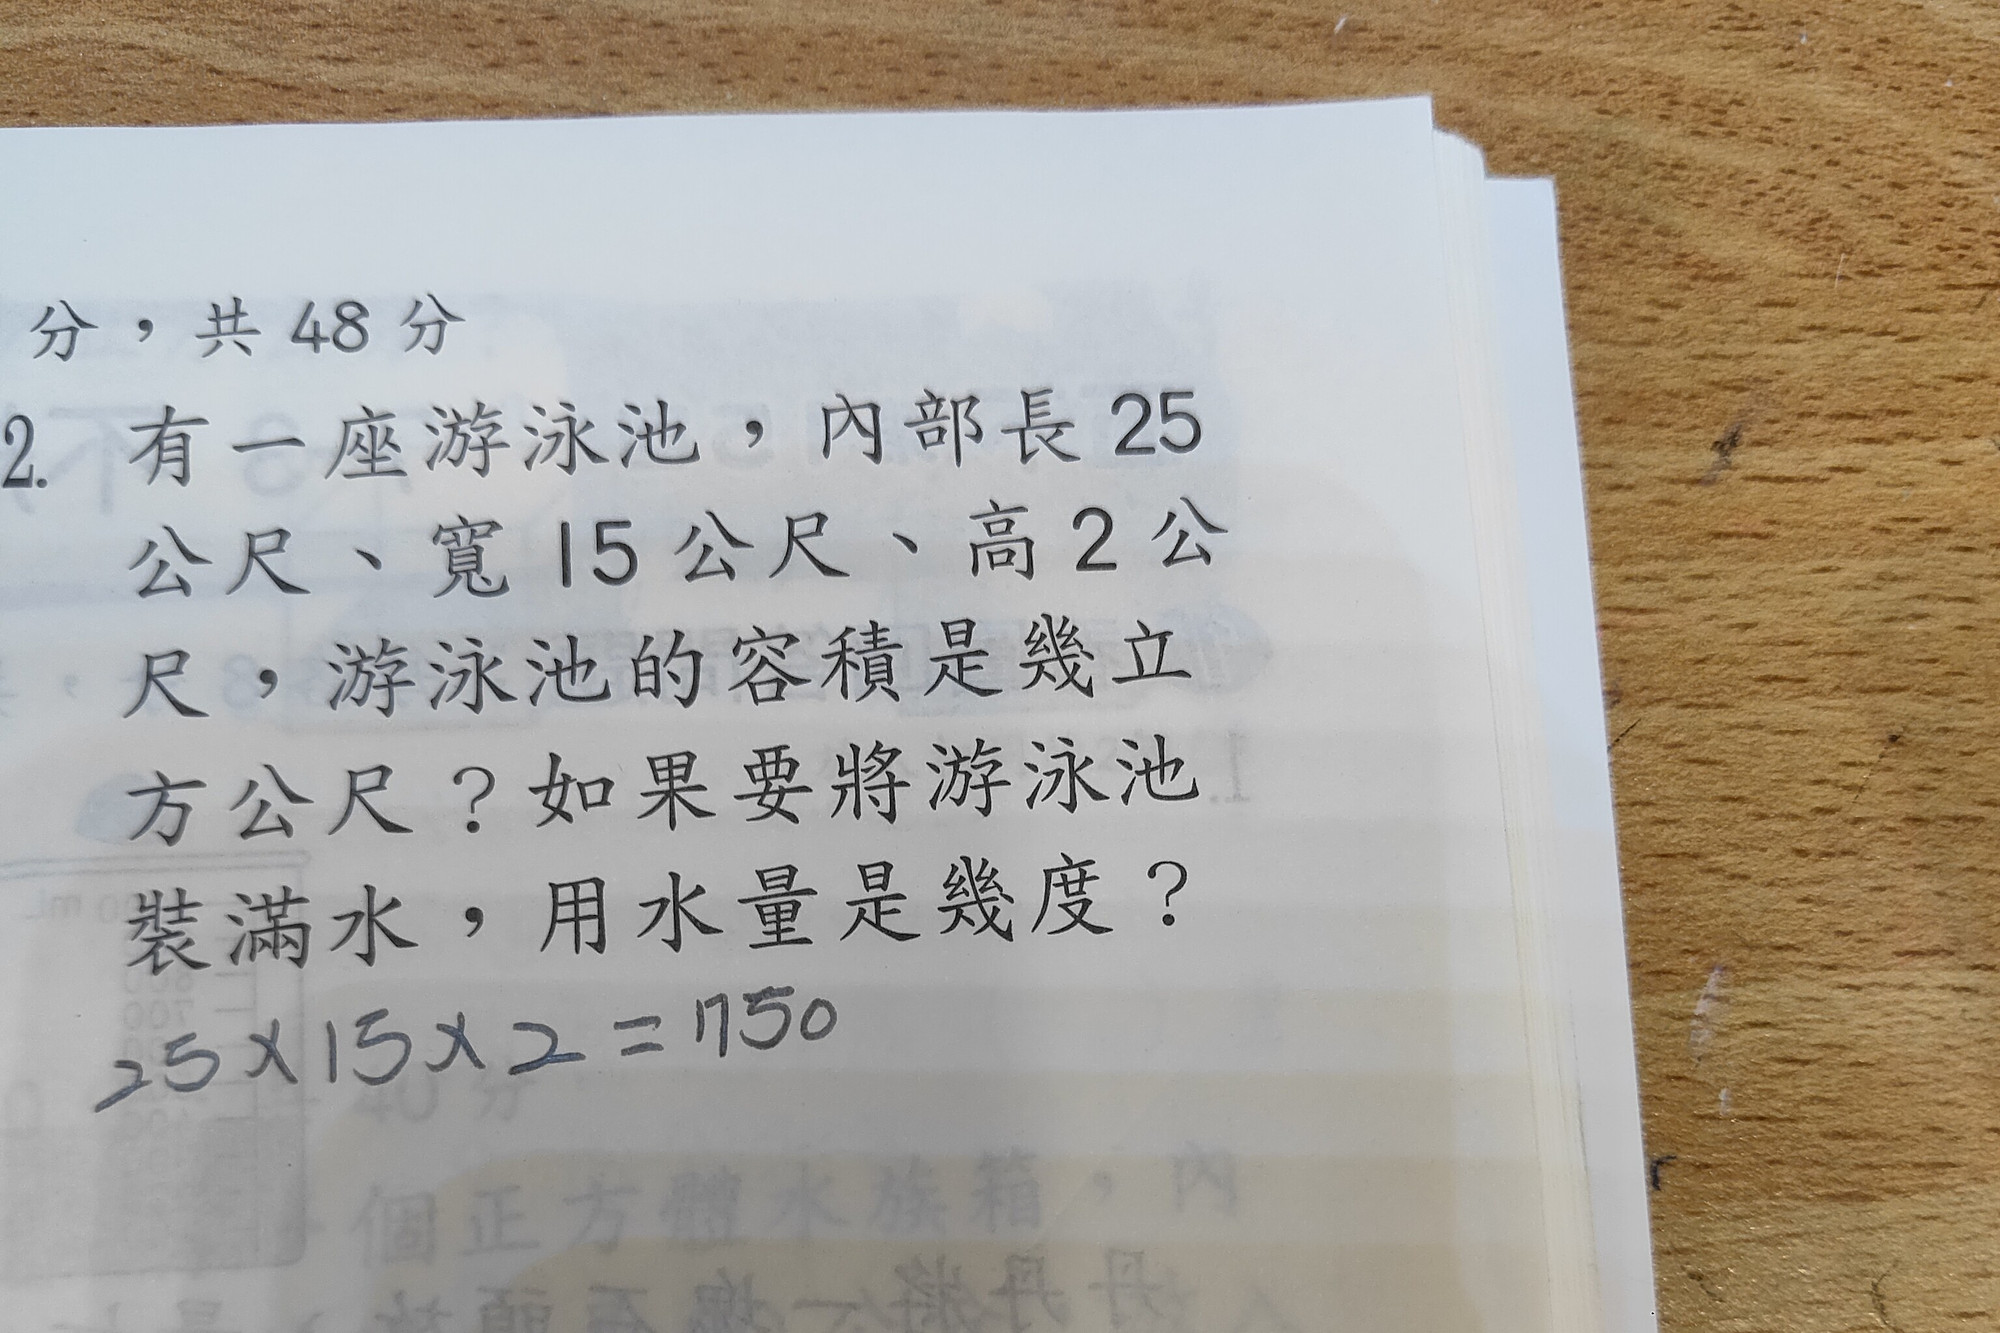 分，共 48 分
2. 有一座游泳池，內部長 25
公尺、寬 15 公尺、高 2 公
尺，游泳池的容積是幾立
方公尺？如果要將游泳池
裝滿水，用水量是幾度？
25×15×2=750
個正方體水族箱，內